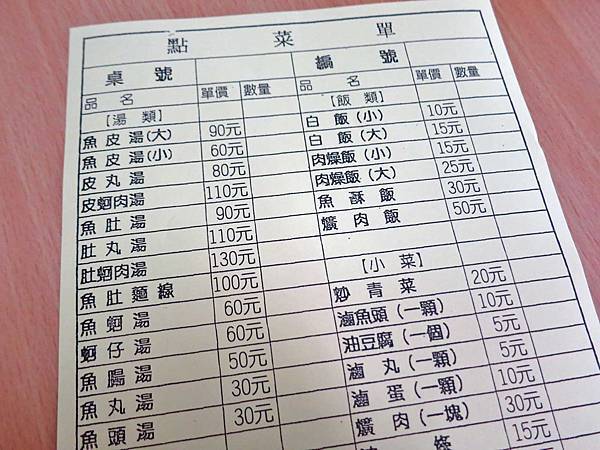 點 菜 單
桌 號
編 號
品 名 單價 數量
品 名 單價 數量
［湯 類］
魚 皮 湯(大) 90元
魚 皮 湯(小) 60元
皮 丸 湯 80元
皮蚵肉湯 110元
魚 肚 湯 90元
肚 丸 湯 110元
肚蚵肉湯 130元
魚 肚 麵 線 100元
魚 蚵 湯 60元
蚵 仔 湯 60元
魚 腸 湯 50元
魚 丸 湯 30元
魚 頭 湯 30元
［飯 類］
白 飯 (小) 10元
白 飯 (大) 15元
肉燥飯 (小) 15元
肉燥飯 (大) 25元
魚 酥 飯 30元
爌 肉 飯 50元
［小 菜］
炒 青 菜 20元
滷魚頭 (一顆) 10元
油豆腐 (一個) 5元
滷 丸 (一顆) 5元
滷 蛋 (一顆) 10元
爌 肉 (一塊) 30元
條 15元